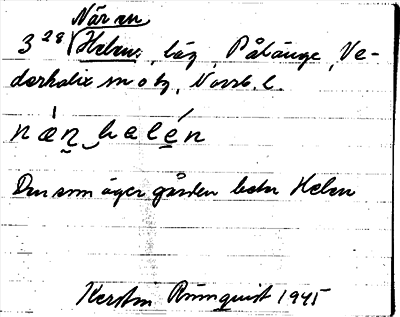 När en
3 28 Helen, läg, Pålänge, Ne-
derkalix sn o tg, Norrb. l.
næ̀n̠‿halé̠n
Den som äger gården heter Helen
Kerstin Rönnquist 1945